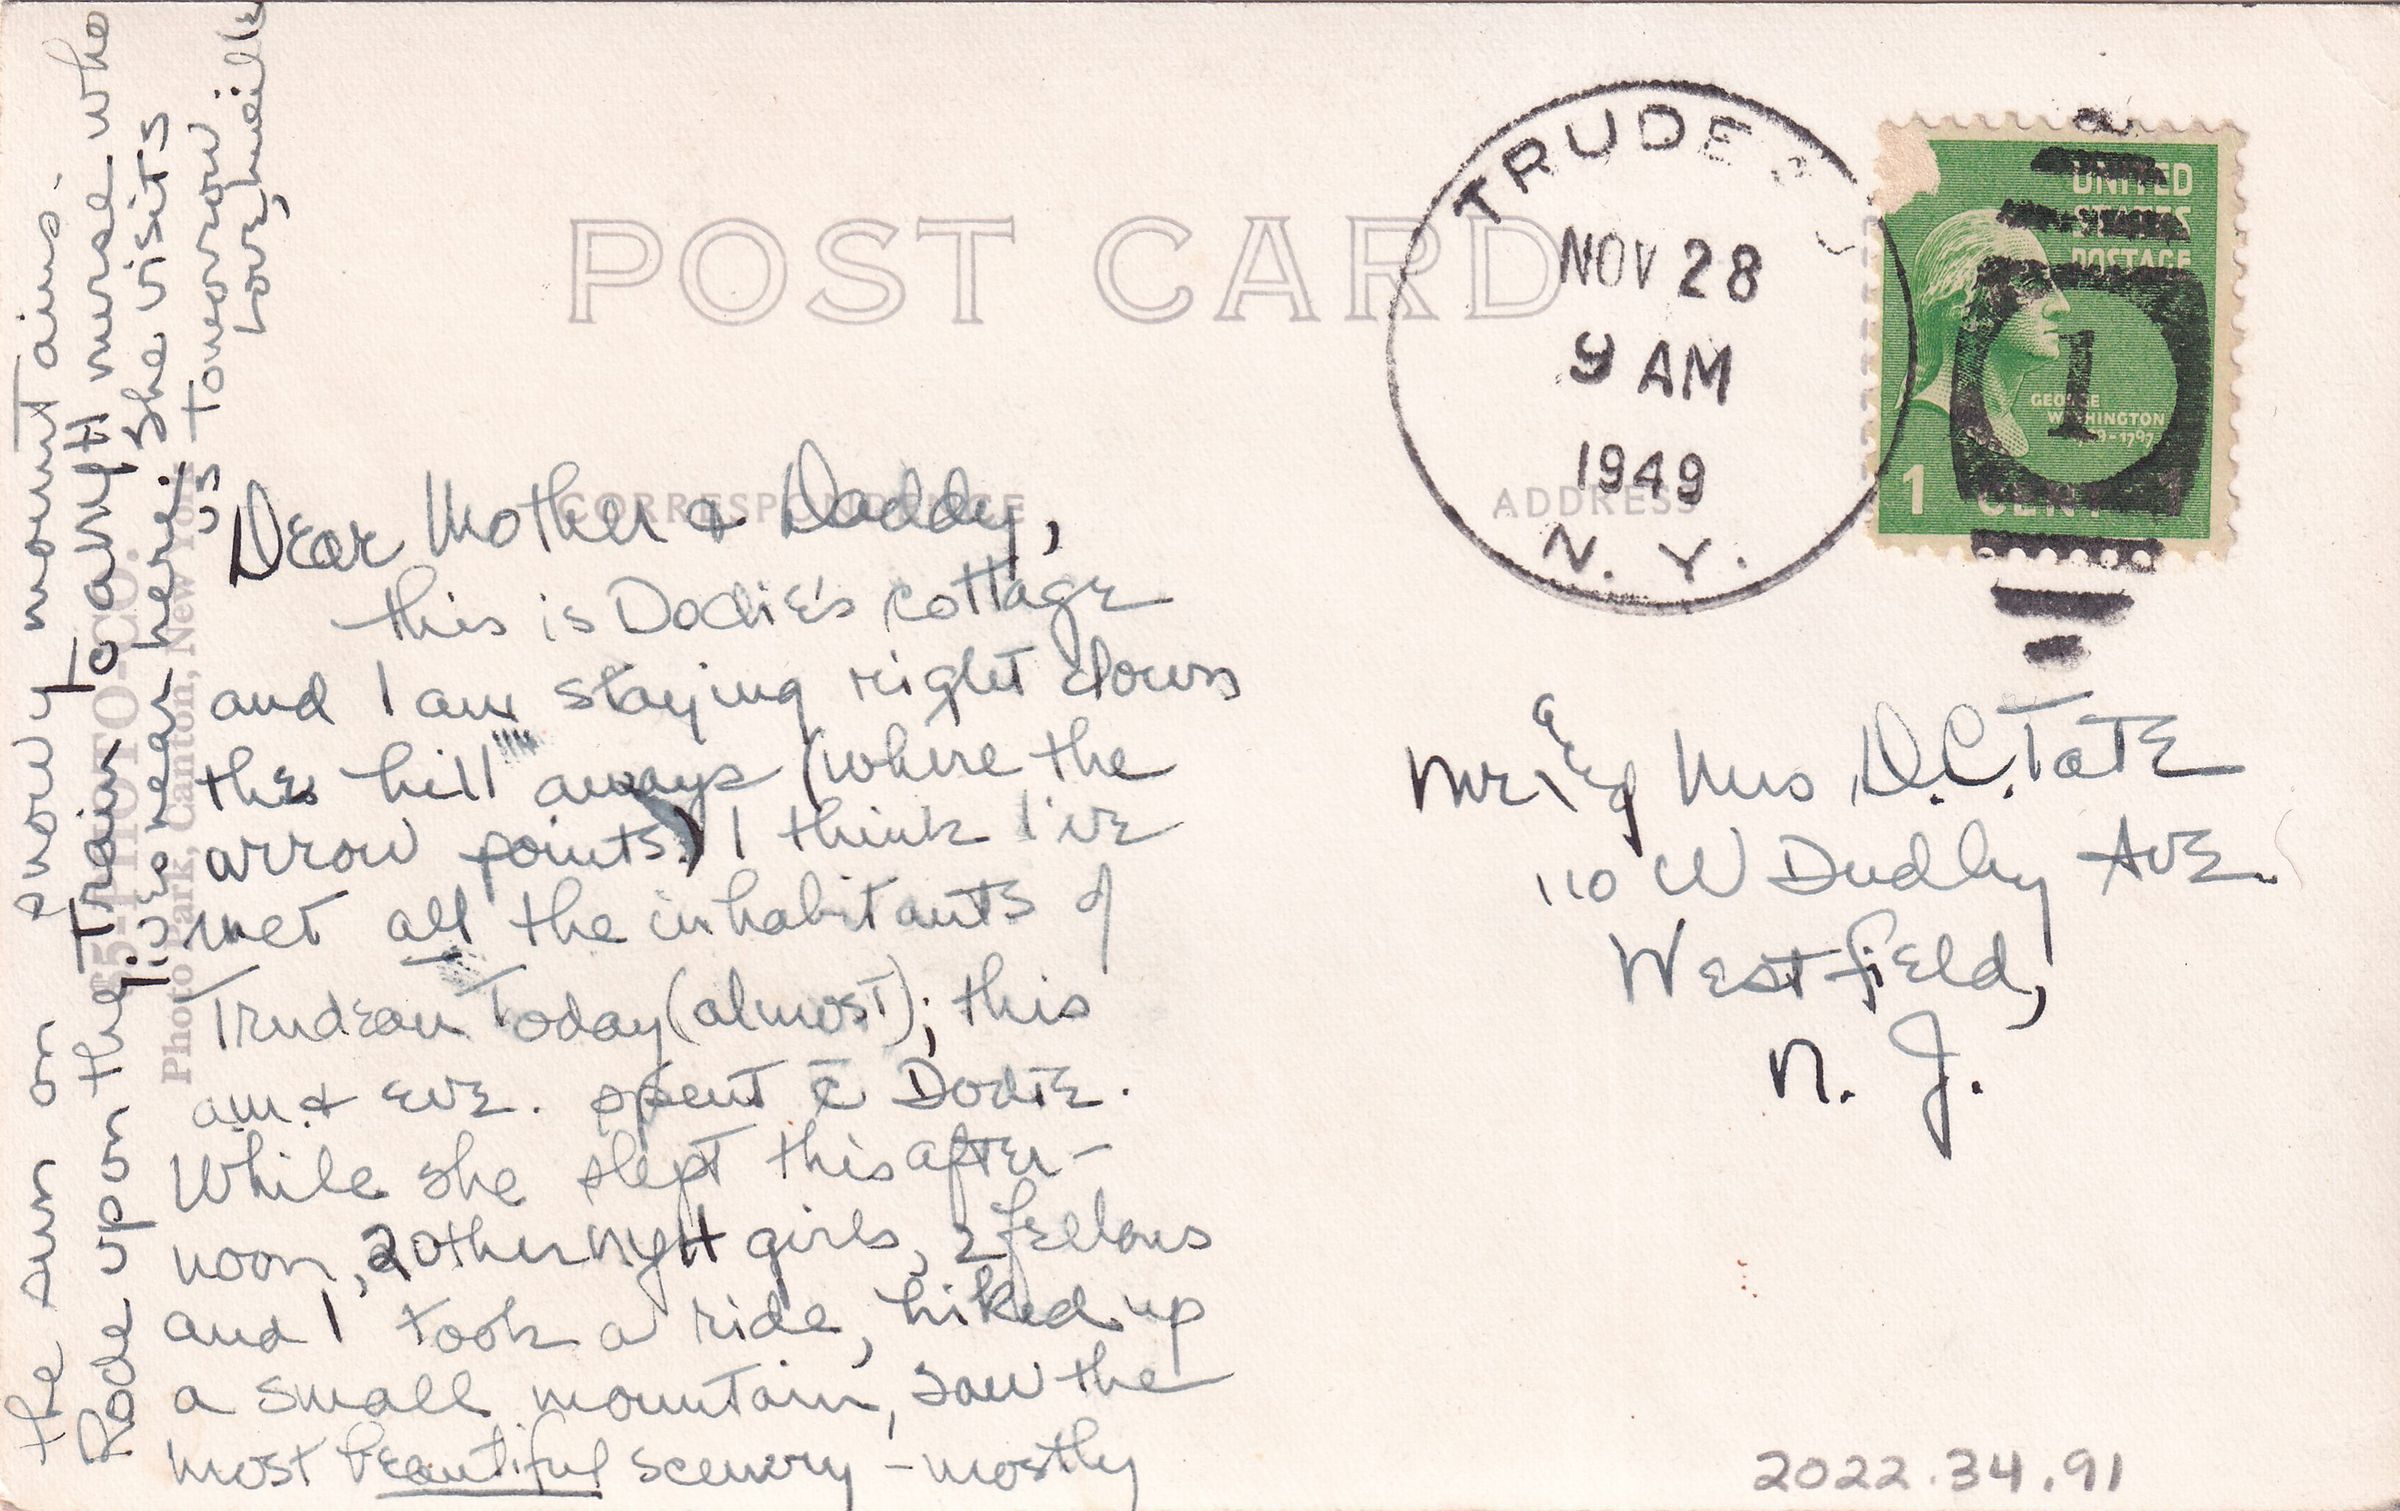 POST CARD
CORRESPONDENCE
ADDRESS
TRUDE
NOV 28
9 AM
1949
N. Y.
UNITED
STATES
POSTAGE
GEORGE
WASHINGTON
1
1 CENT 1
Dear Mother & Daddy,
this is Dodie's cottage
and I am staying right down
the hill aways (where the
arrow points) I think I've
met all the inhabitants of
Trudeau Today (almost); this
am. & eve. spent c̄ Dodie.
While she slept this after-
noon, 2 other NYH girls, 2 fellows
and I took a ride, hiked up
a small mountain, saw the
most beautiful scenery - mostly
the sun on snowy mountains.
Rode upon the Train To a NYH nurse who
lives near here. She visits
us Tomorrow
Love,
Mr. & Mrs D.C. Tate
110 W Dudley Ave.
Westfield,
N. J.
PHOTO-CO.
Photo Park, Canton, New York
2022.34.91